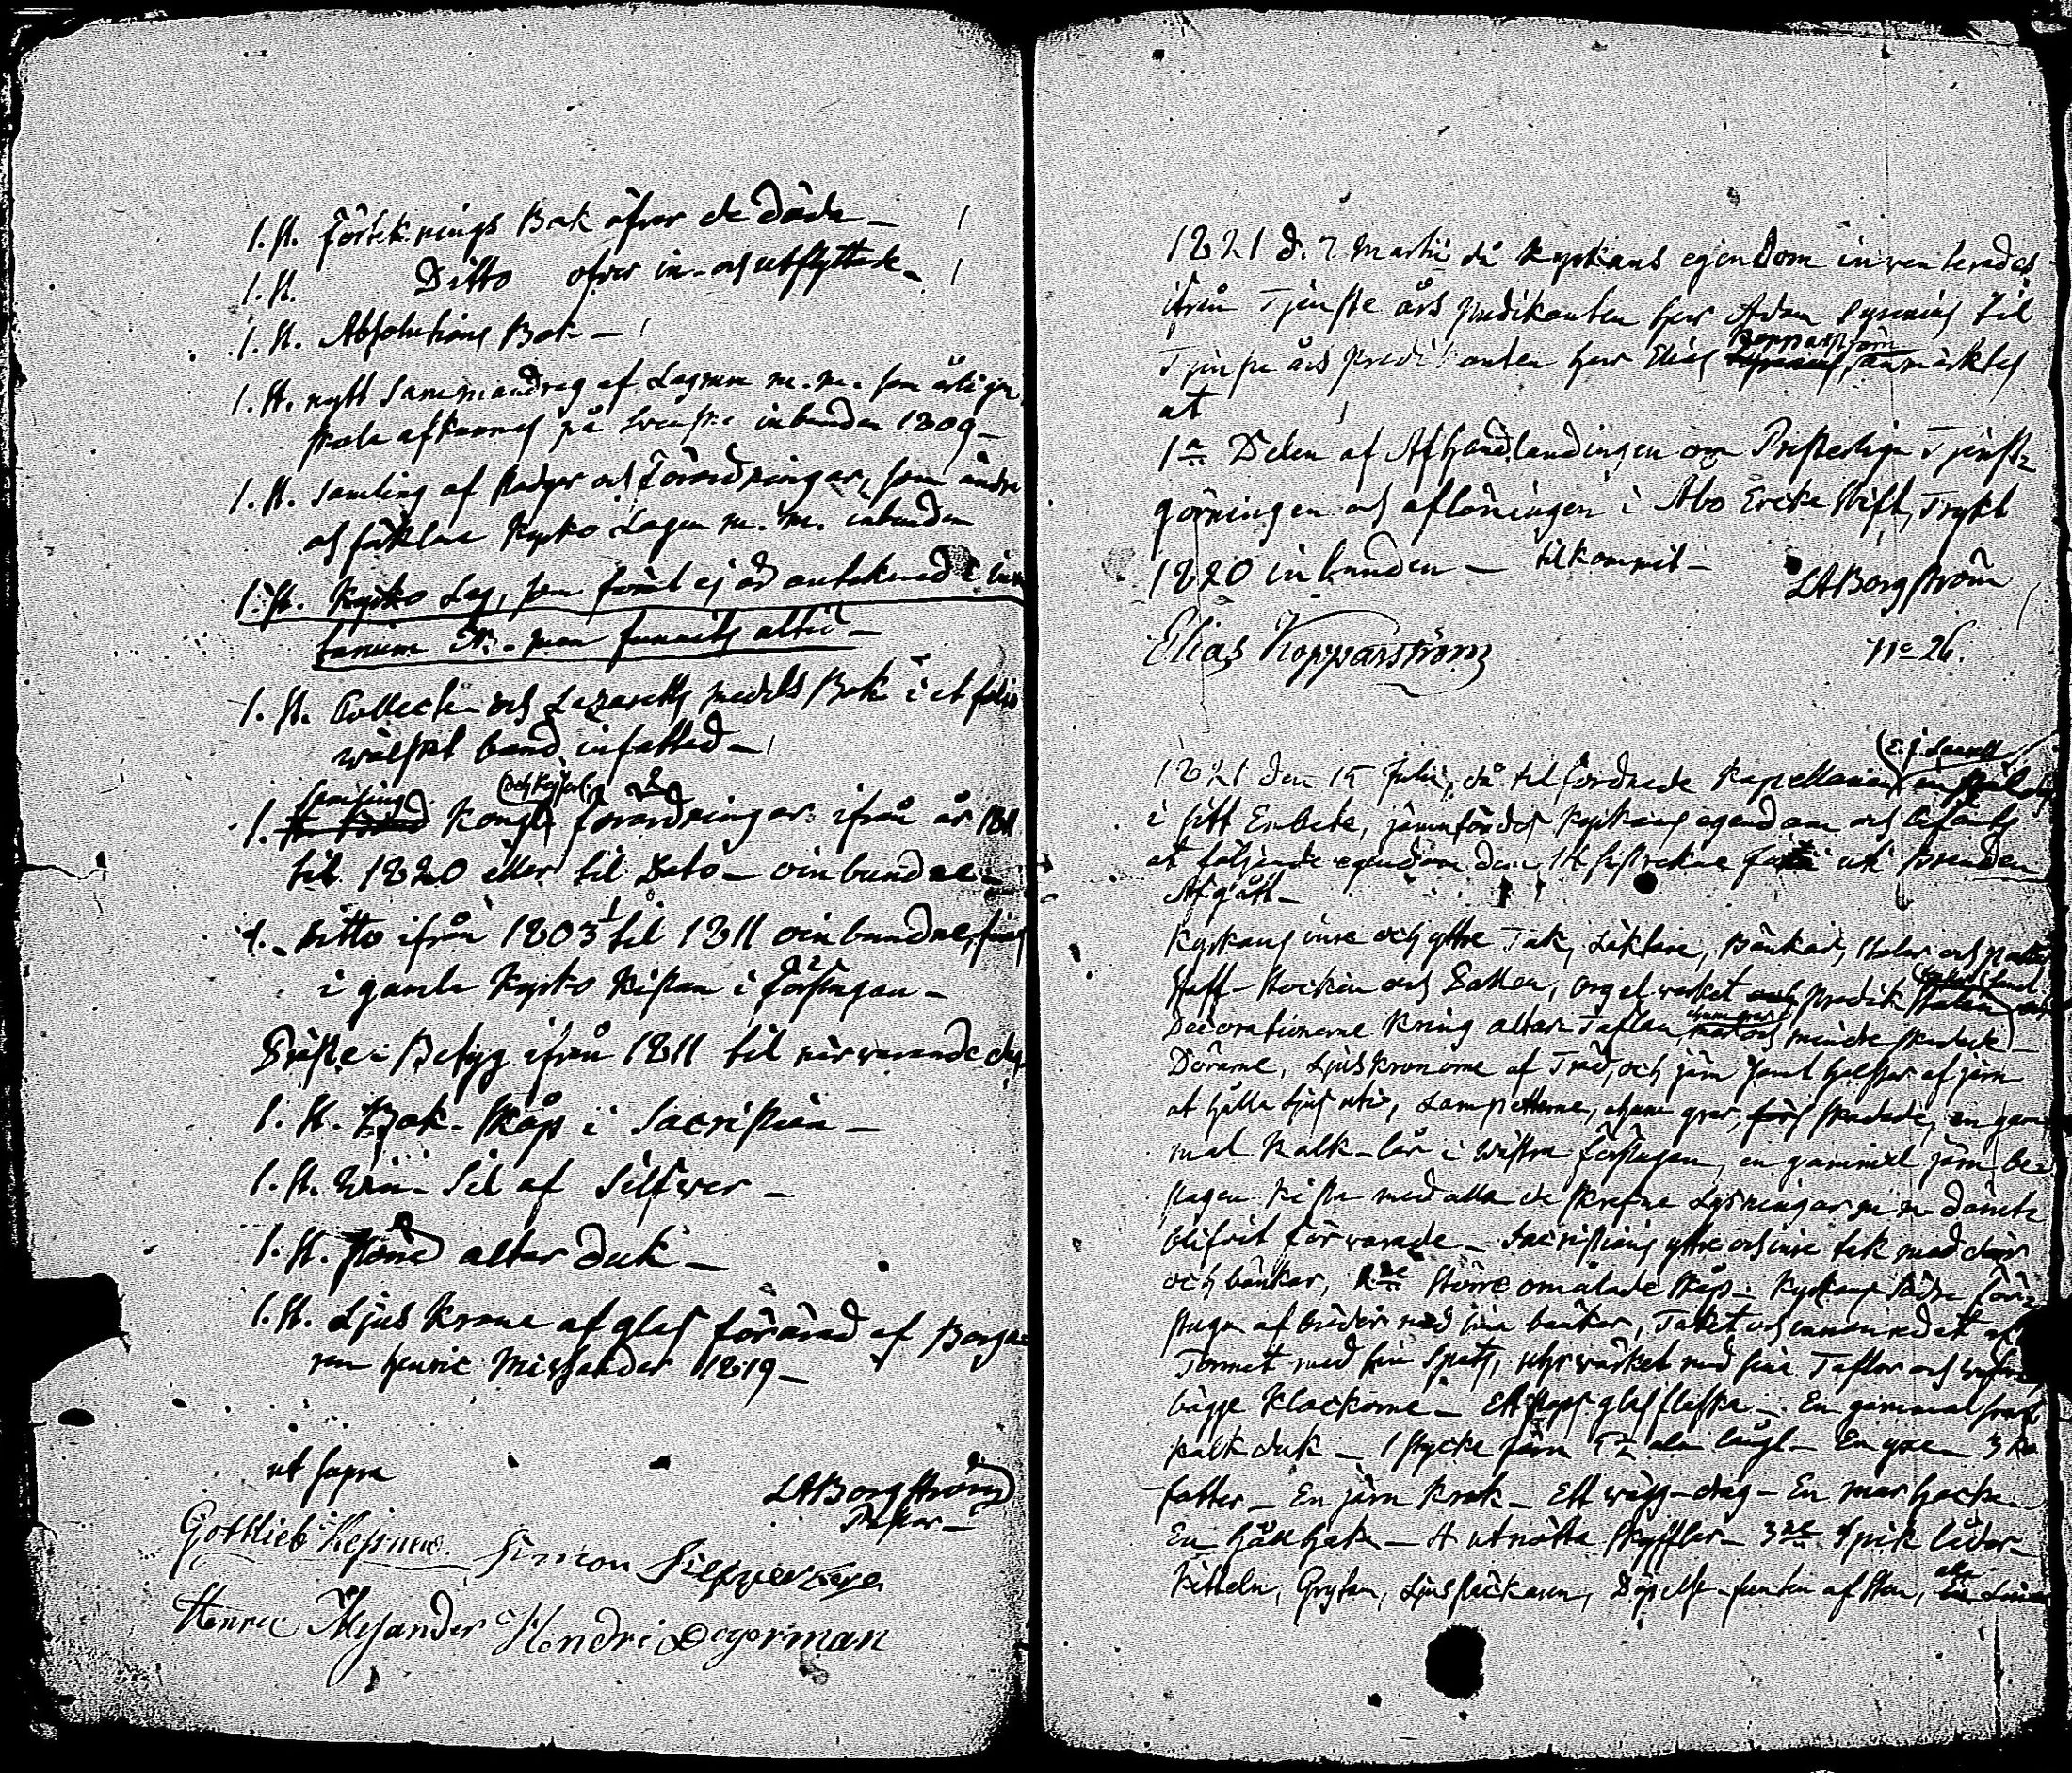 1. st. förtekningsBok öfver de döda —
1. st. Ditto öfver in- och utflyttade —
1. st. Absolutions Bok —
1. st. nytt Sammandrag af Lagrum m. m. som årligen
skola afkunnas på Svenska inbunden 1809 —
1. st. Samling af Stadgar och Förordningar, som ändra
och förklara Kyrko Lagen m. m. inbunden
1. st. Kyrko Lag, som förut ej är antecknad i inven
tarium men funnits altid —
1. st. Collecte- och Lazaretts medels Bok i et folio
wälskt band infattad —
1. Samling Kongl. och Kejserl. förordningar ifrån år 1811
til 1820 eller til Dato — oinbundne —
1. Ditto ifrån 1803 til 1811 oinbundne, finns
i gamla Kyrko Kistan i förstugan —
Präste Betyg ifrån 1811 til närwarande dag
1. st. Bok-skåp i Sacristian —
1. st. Win-Sil af Silfwer —
1. st. altar duk —
1. st. Ljus Krona af glas förärad af Borga-
ren Henric Missander 1819 —
ut supra
LABorgström
Pastor —
Gottlieb
Simon
Henric Hendric Degerman
1821 d. 7 Martii då Kyrkans egendom inventerades
ifrån Tjenste års predikanten herr Adam Pyrenius til
Tjenste års predikanten herr Elias Kopparström, anmärktes
at
1a Delen af Afhandlandingen om Presterliga Tjenst-
göringen och aflöningen i Åbo Ercke Stift, Trykt
1820 inbunden — tilkommit —
LABorgström
Elias Kopparström
no 26.
1821 den 15 Julii, då tilförordnade Kapellanen
i sitt Embete, jämnfördes Kyrkans egendom och befants
at följande egendom den 14 uti branden
Afgått —
Kyrkans inre och yttre Tak, Läktare, Bänkar, Stolar och
Staff-stocken och Satten, Orgelwerket predik stolen
Decorationerne kring altar Taflan mindre skadade —
Dörarne, Ljuskronorne af Träd, och järn samt
at hålla Ljus uti, Lampetterne, skadade, en gam
mal Kalk-lår i Wästra förstugan, en gammal järn be-
slagen Kista med alla de skrefne Lysningar m m därute
blifvit förwarade — Sacristians yttre och inre tak med dörr
och bänkar, 2ne större omålade skåp — Kyrkans Södra För-
stuga af bräder med sina bänkar, Taket och innanredet af
Tornet med sin Spets, uhrwärket med sina Taflor och
bägge Klockorne — Ett glas flaska — En gammal
kalk duk — 1 stycke järn 5½ aln långt — En yxe — 3
fatter — En järn krok — Ett —
En — 4 utnötta Skyfflar — 3ne Spik lådor
Kitteln, Grytan, Ljusstickaren, Döpelse-funten af Sten,